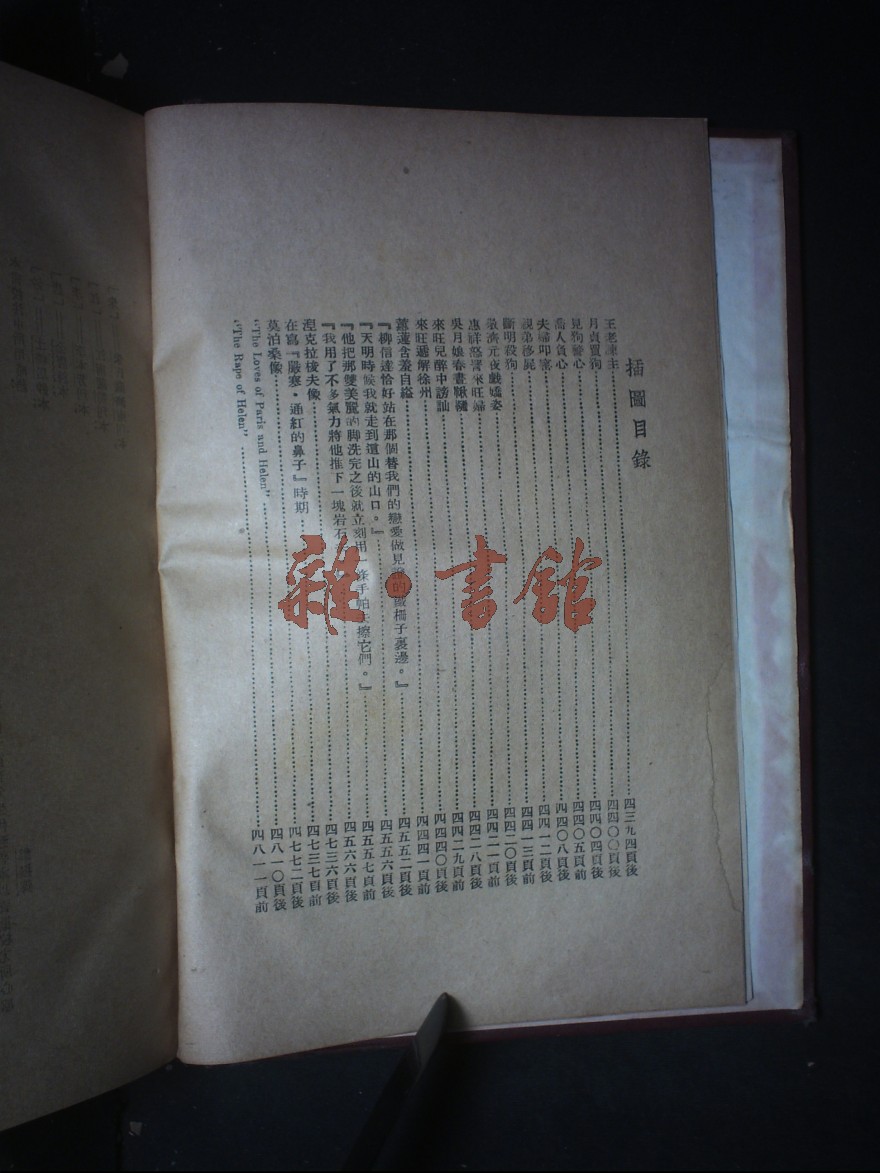 插圖目錄
王老諫主……四三九四頁後
月貞買狗……四四〇〇頁後
見狗驚心……四四〇四頁後
喬人負心……四四〇五頁後
夫婦叩窰……四四〇八頁後
親弟移屍……四四一二頁後
斷明殺狗……四四一三頁前
敬濟元夜戲嬌姿……四四二〇頁後
惠祥怒詈來旺婦……四四二一頁前
吳月娘春晝鞦韆……四四二八頁後
來旺兒醉中謗訕……四四二九頁前
來旺遞解徐州……四四四〇頁後
蕙蓮含羞自縊……四四四一頁前
『柳信達恰好站在那個替我們的戀愛做見證的櫥子裏邊。』……四五五二頁後
『天明時候我就走到這山的山口。』……四五五六頁後
『他把那雙美麗的脚洗完之後就立刻用一條手帕去擦它們。』……四五五七頁前
『我用了不多氣力將他推下一塊岩石……四五六六頁後
涅克拉梭夫像……四七三六頁後
在寫『嚴寒・通紅的鼻子』時期……四七三七頁前
莫泊桑像……四七七二頁後
"The Loves of Paris and Helen"……四八一〇頁後
"The Rape of Helen"……四八一一頁前
雜·書館